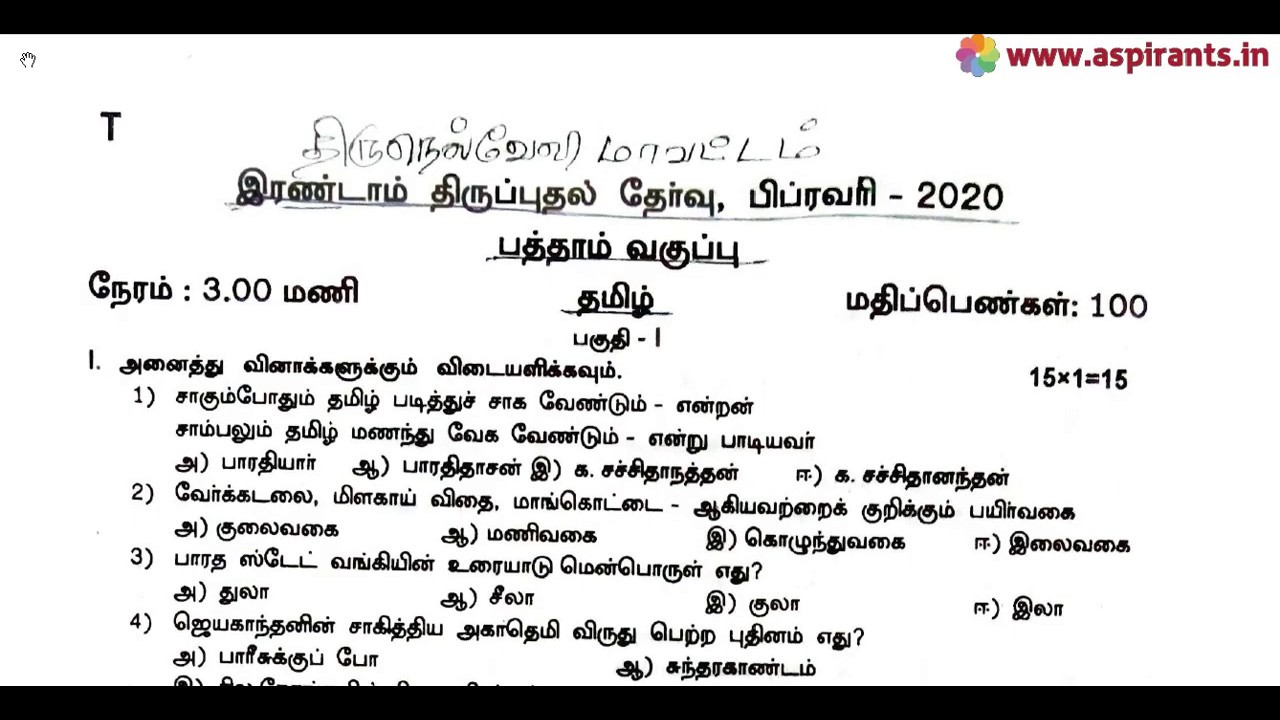 www.aspirants.in
T
திருநெல்வேலி மாவட்டம்
இரண்டாம் திருப்புதல் தேர்வு, பிப்ரவரி - 2020
பத்தாம் வகுப்பு
நேரம் : 3.00 மணி தமிழ் மதிப்பெண்கள்: 100
பகுதி - I
I. அனைத்து வினாக்களுக்கும் விடையளிக்கவும். 15×1=15
1) சாகும்போதும் தமிழ் படித்துச் சாக வேண்டும் - என்றன்
சாம்பலும் தமிழ் மணந்து வேக வேண்டும் - என்று பாடியவர்
அ) பாரதியார் ஆ) பாரதிதாசன் இ) க. சச்சிதாநத்தன் ஈ) க. சச்சிதானந்தன்
2) வேர்க்கடலை, மிளகாய் விதை, மாங்கொட்டை - ஆகியவற்றைக் குறிக்கும் பயிர்வகை
அ) குலைவகை ஆ) மணிவகை இ) கொழுந்துவகை ஈ) இலைவகை
3) பாரத ஸ்டேட் வங்கியின் உரையாடு மென்பொருள் எது?
அ) துலா ஆ) சீலா இ) குலா ஈ) இலா
4) ஜெயகாந்தனின் சாகித்திய அகாதெமி விருது பெற்ற புதினம் எது?
அ) பாரீசுக்குப் போ ஆ) சுந்தரகாண்டம்